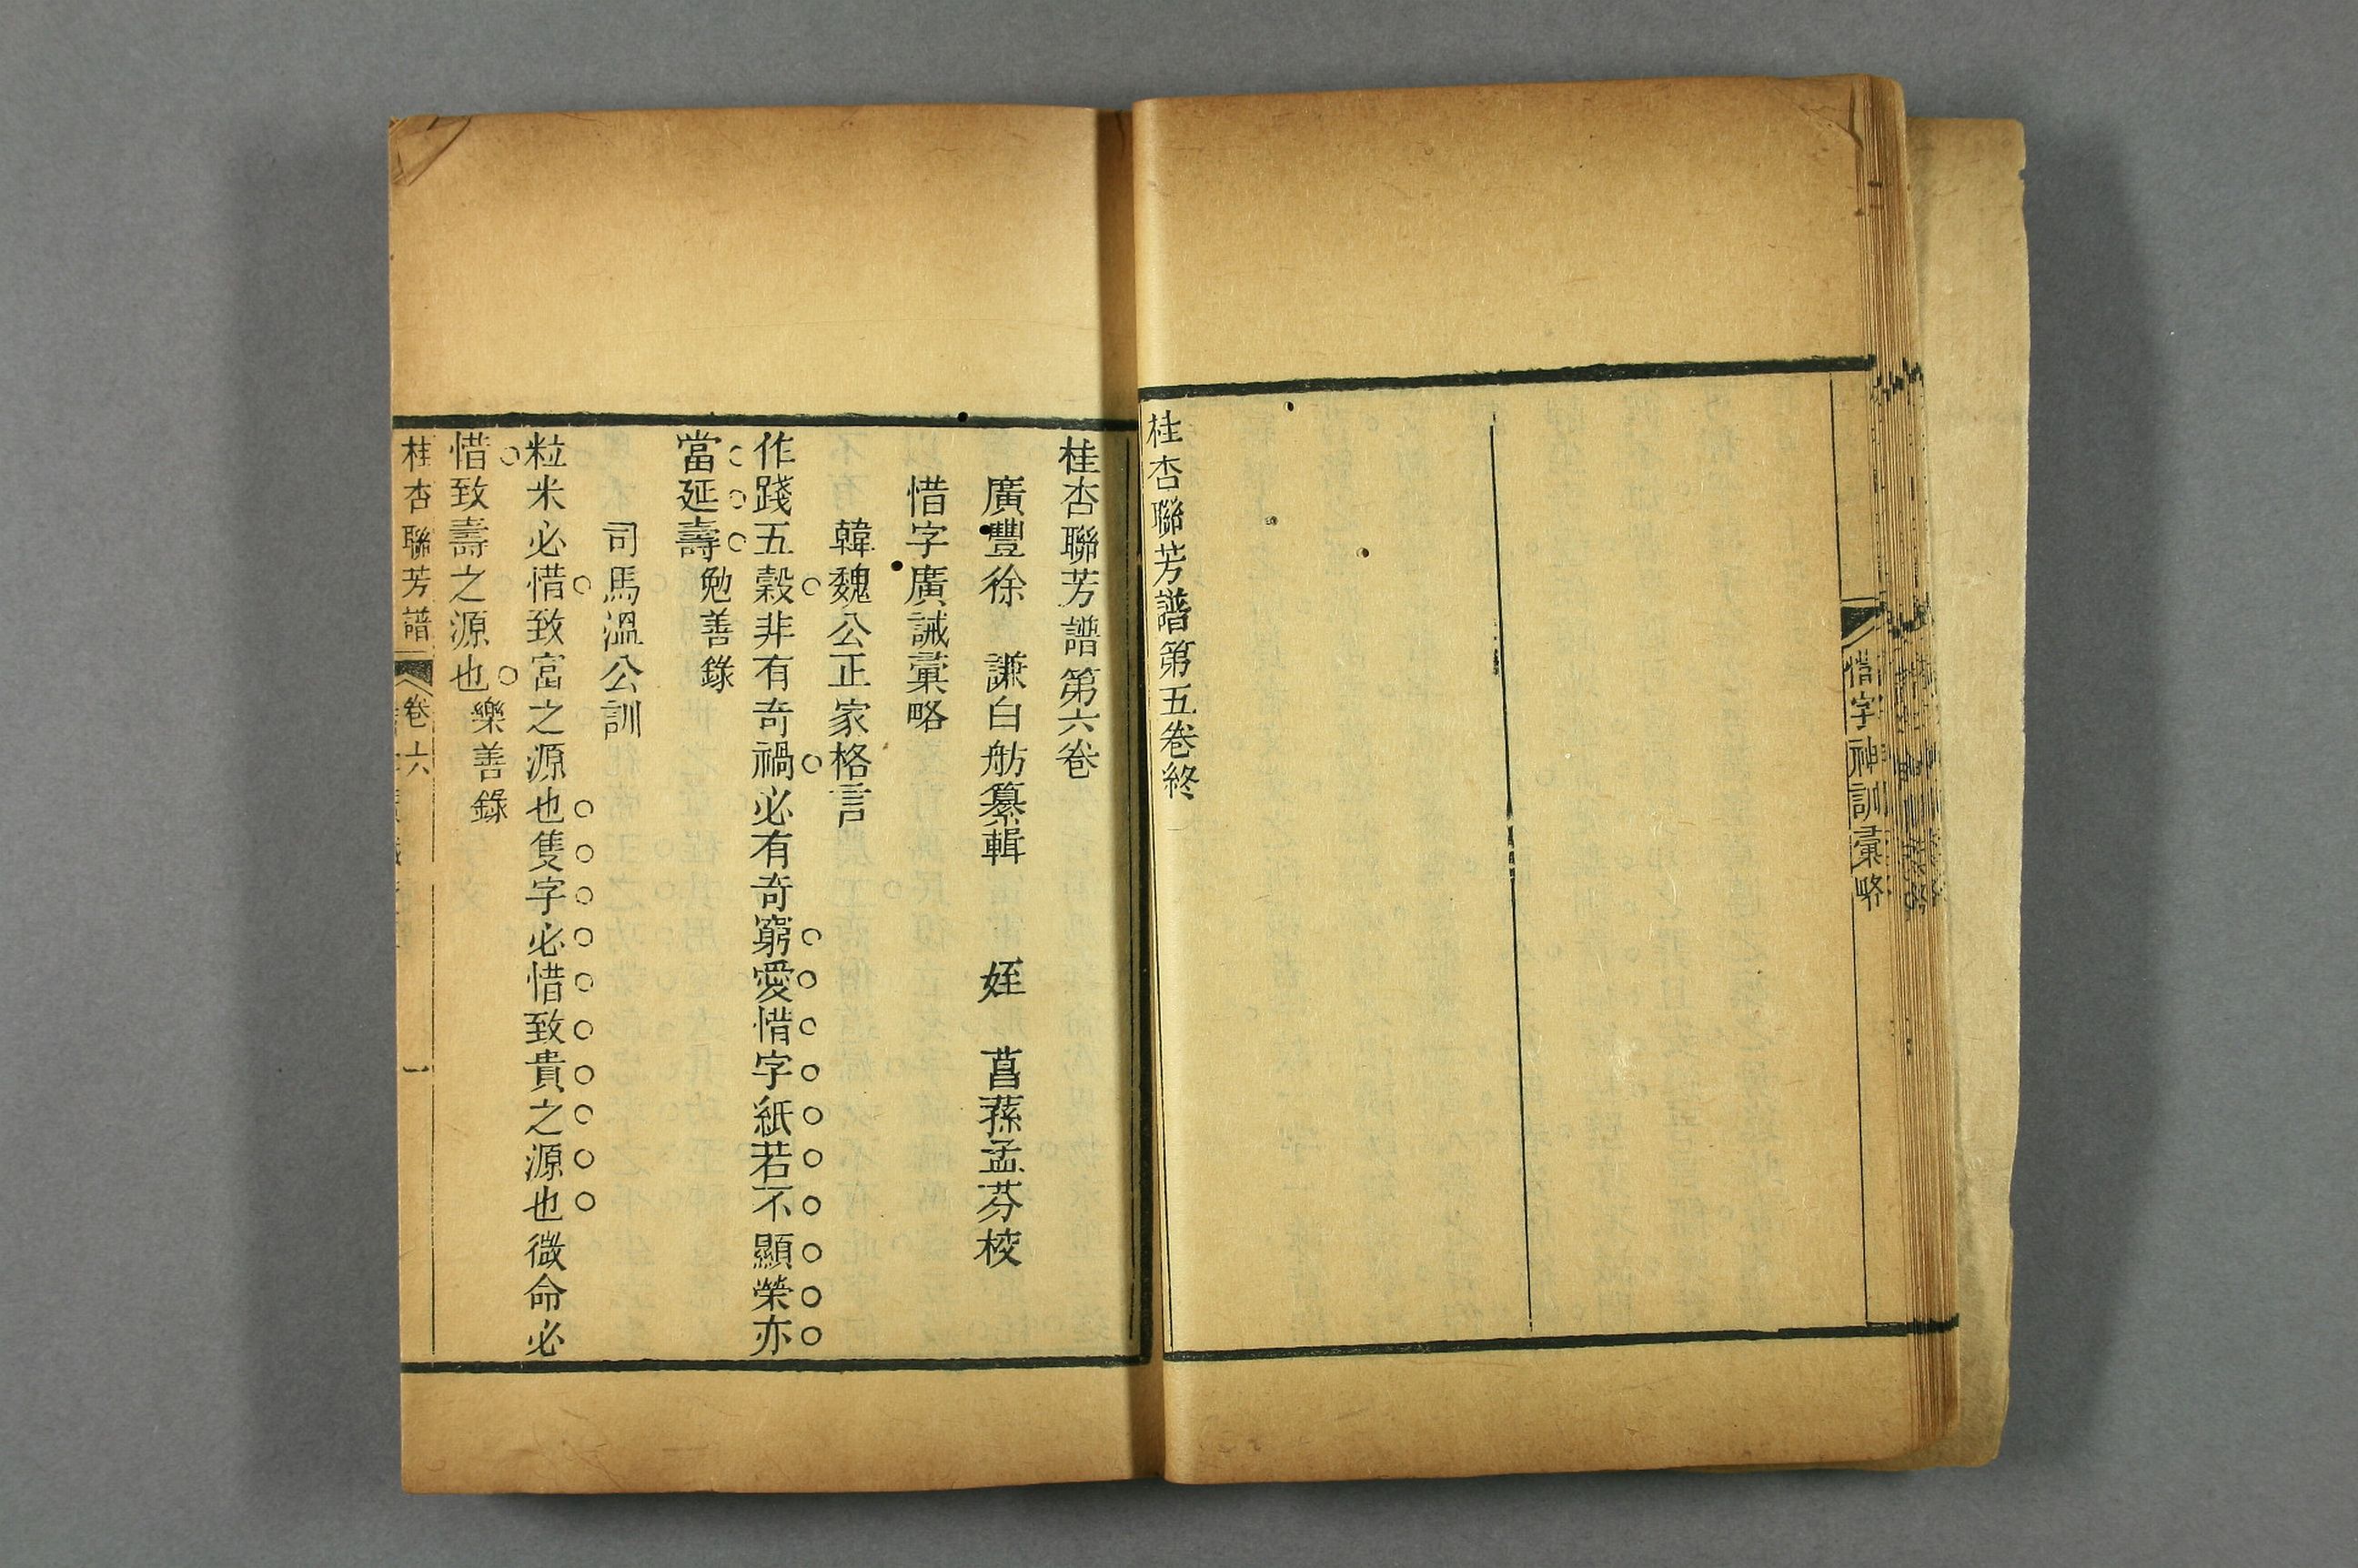 惜字神訓彙略
桂杏聯芳譜第五卷終
桂杏聯芳譜第六卷
廣豐徐　謙白舫纂輯　　姪　菖蓀孟芬校
惜字廣誡彙略
韓魏公正家格言
作踐五穀非有奇禍必有奇窮愛惜字紙若不顯榮亦
當延壽勉善錄
司馬溫公訓
粒米必惜致富之源也隻字必惜致貴之源也微命必
惜致壽之源也樂善錄
桂杏聯芳譜　卷六　一